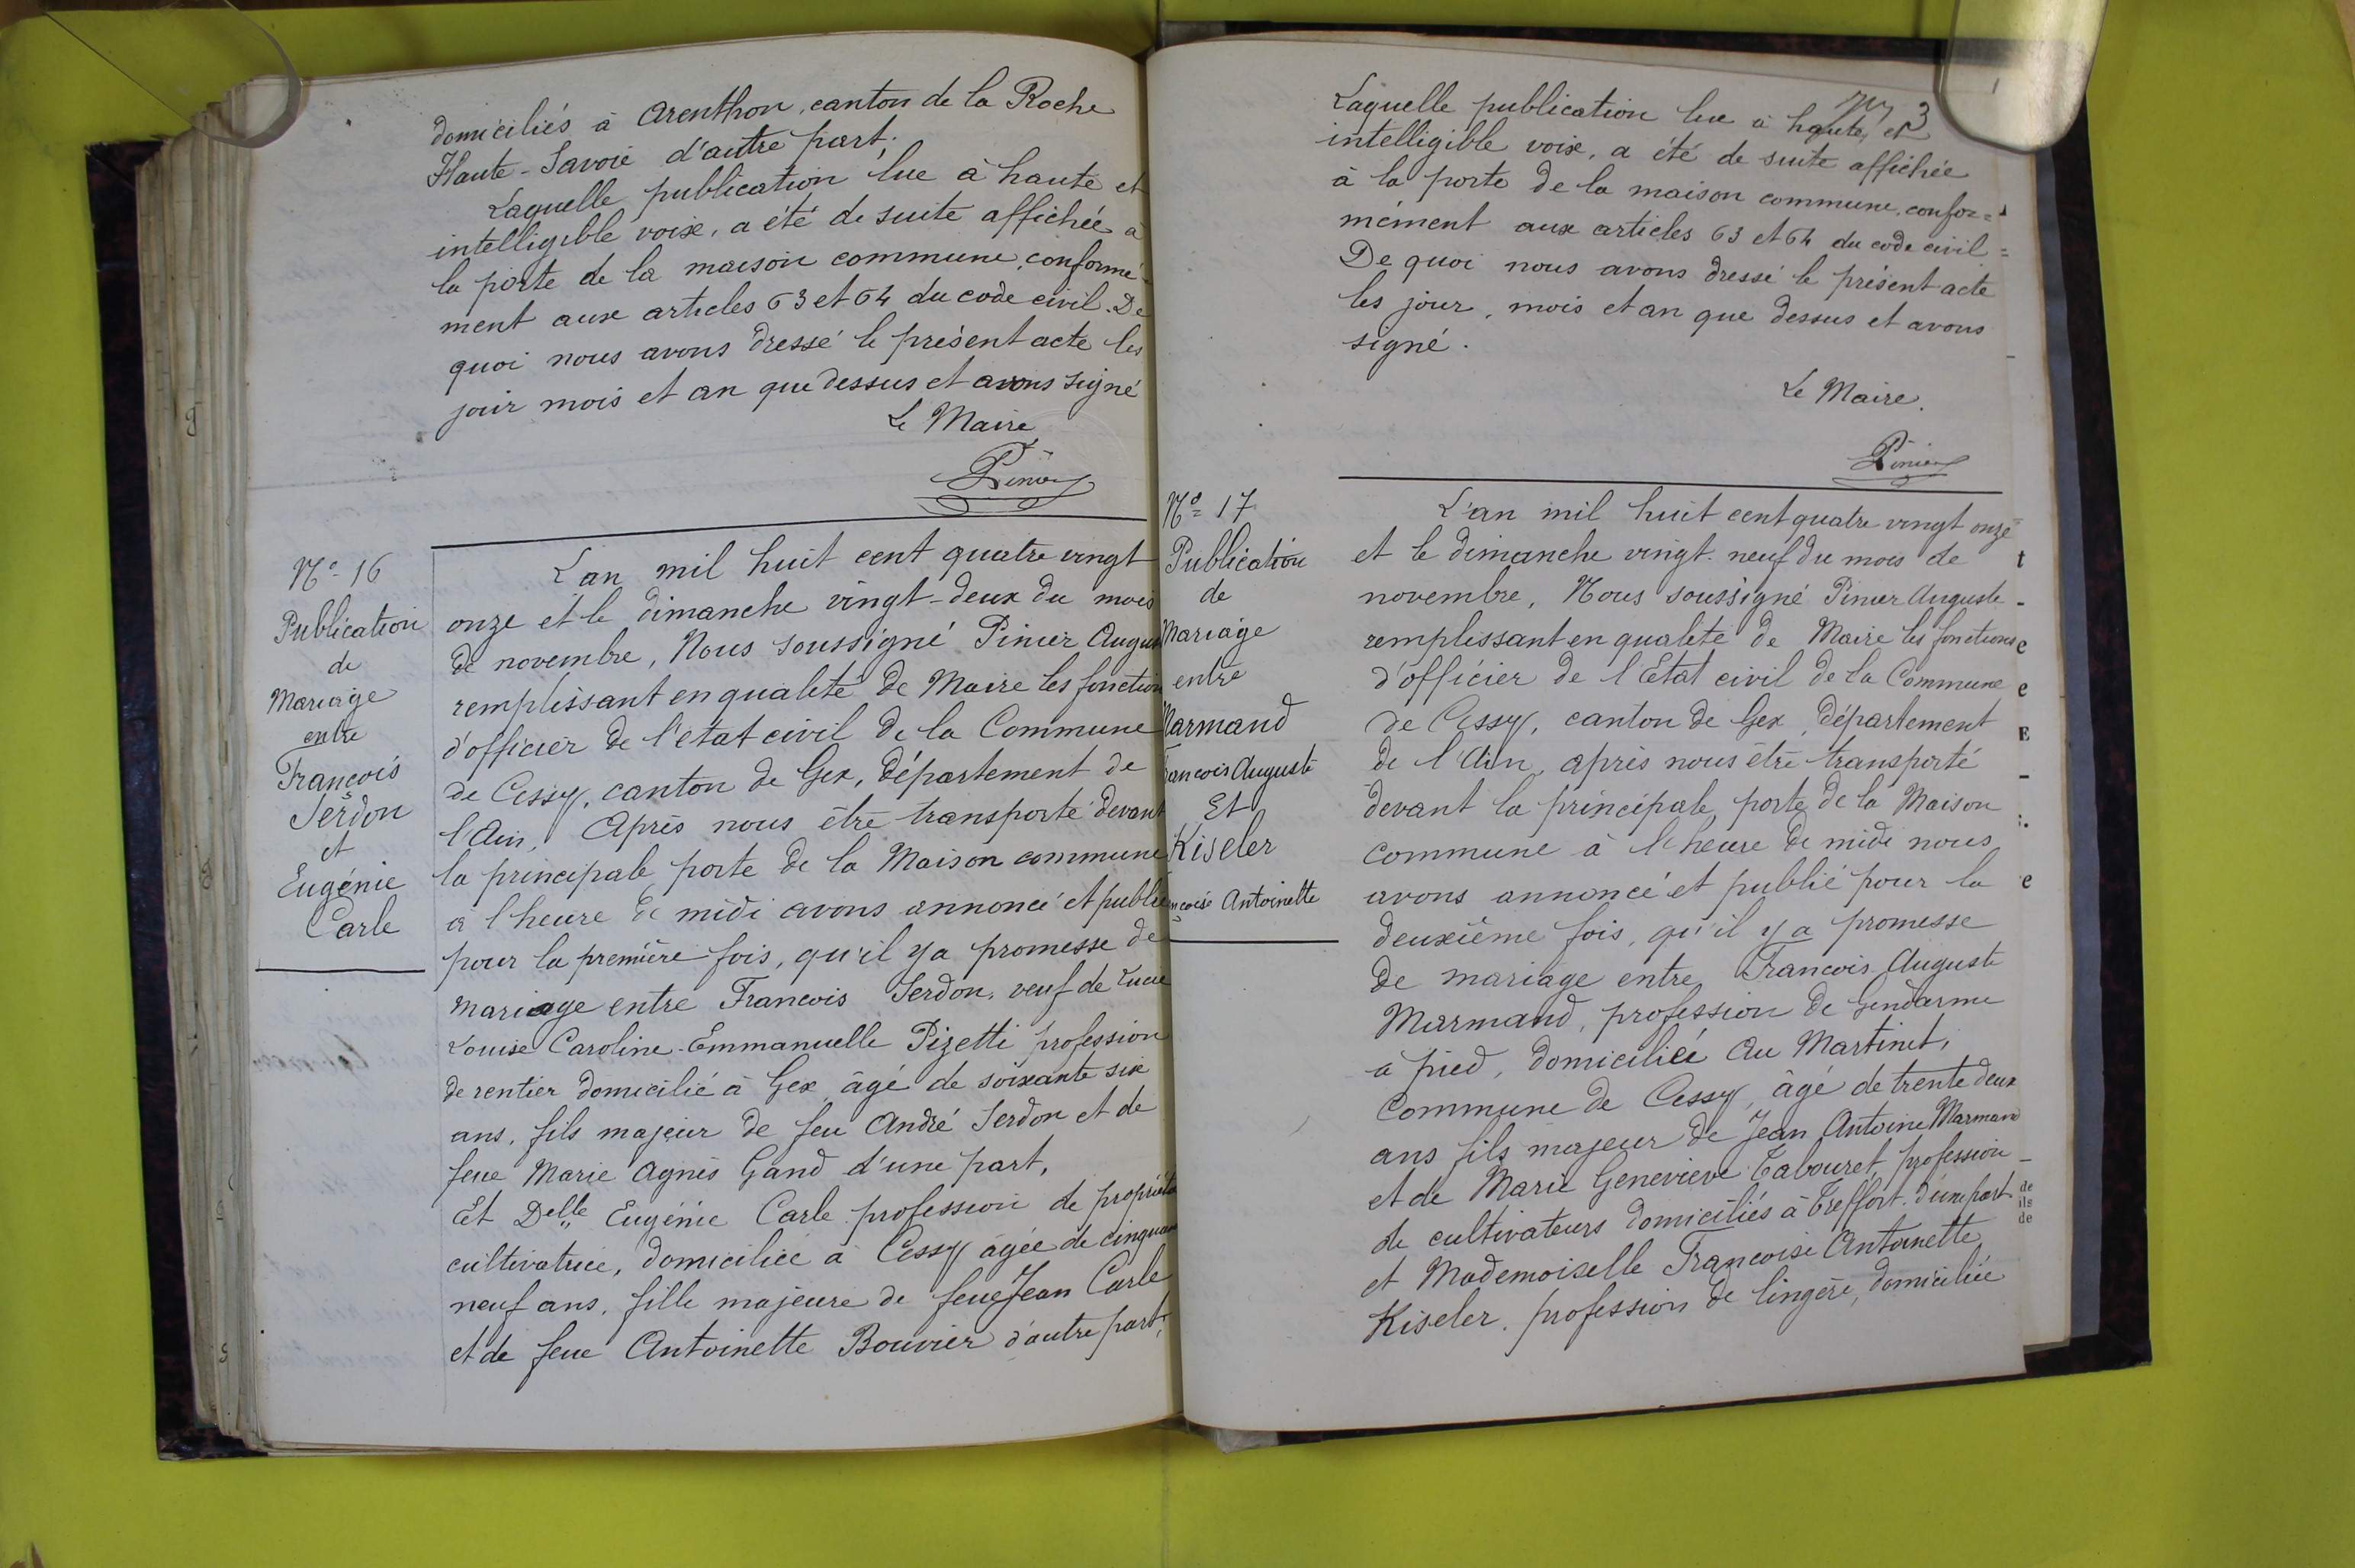 domiciliés à Arenthon, canton de la Roche
Haute-Savoie d'autre part.
Laquelle publication lue à haute et
intelligible voix, a été de suite affichée à
la porte de la maison commune, conformé-
ment aux articles 63 et 64 du code civil. De
quoi nous avons dressé le présent acte les
jour mois et an que dessus et avons signé
Le Maire
Pinier
No 16
Publication
de
Mariage
entre
François
Serdon
et
Eugénie
Carle
L'an mil huit cent quatre vingt
onze et le dimanche vingt-deux du mois
de novembre, Nous soussigné Pinier Augus
remplissant en qualité de Maire les fonction
d'officier de l'état civil de la Commune
de Cessy, canton de Gex, Département de
l'Ain, Après nous être transporté devant
la principale porte de la Maison commune
à l'heure de midi avons annoncé et publié
pour la première fois, qu'il y a promesse de
mariage entre Francois Serdon, veuf de Lucie
Louise Caroline Emmanuelle Pizetti profession
de rentier domicilié à Gex âgé de soixante six
ans, fils majeur de feu André Serdon et de
feue Marie Agnès Gand d'une part,
Et Delle Eugénie Carle profession de propriéta
cultivatrice, domiciliée à Cessy âgée de cinquan
neuf ans, fille majeure de feue Jean Carle
et de feue Antoinette Bouvier d'autre part,
3
Laquelle publication lue à haute et
intelligible voix, a été de suite affichée
à la porte de la maison commune, confor=
mément aux articles 63 et 64 du code civil=
De quoi nous avons dressé le présent acte
les jour, mois et an que dessus et avons
signé.
Le Maire.
Pinier
No 17
Publication
de
Mariage
entre
Marmand
ancois Auguste
Et
Kiseler
ncoise Antoinette
L'an mil huit cent quatre vingt onze
et le dimanche vingt-neuf du mois de
novembre, Nous soussigné Pinier Auguste
remplissant en qualité de Maire les fonctions
d'officier de l'Etat civil de la Commune
de Cessy, canton de Gex, Département
de l'Ain, après nous être transporté
devant la principale porte de la Maison
commune à l'heure de midi nous
avons annoncé et publié pour la
deuxième fois, qu'il y a promesse
de mariage entre Francois Auguste
Marmand, profession de Gendarme
à pied, domicilié Au Martinet,
Commune de Cessy, âgé de trente deux
ans fils majeur de Jean Antoine Marmand
et de Marie Geneviève Tabouret profession
de cultivateurs domiciliés à Treffort d'une part
et Mademoiselle Francoise Antoinette
Kiseler, profession de lingère, domiciliée